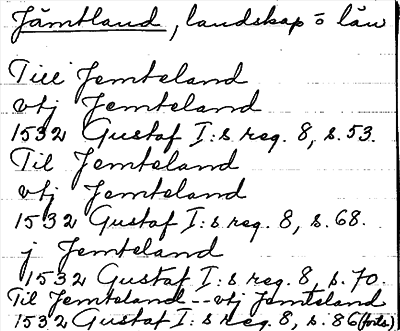 Jämtland, landskap o län
Till Jemteland
vtj Jemteland
1532 Gustaf I:s reg. 8, s. 53.
Til Jemteland
vtj Jemteland
1532 Gustaf I:s reg. 8, s. 68.
j Jemteland
1532 Gustaf I:s reg. 8, s. 70.
Til Jemteland -- vtj Jemteland
1532 Gustaf I:s reg. 8, s. 86 (forts.)